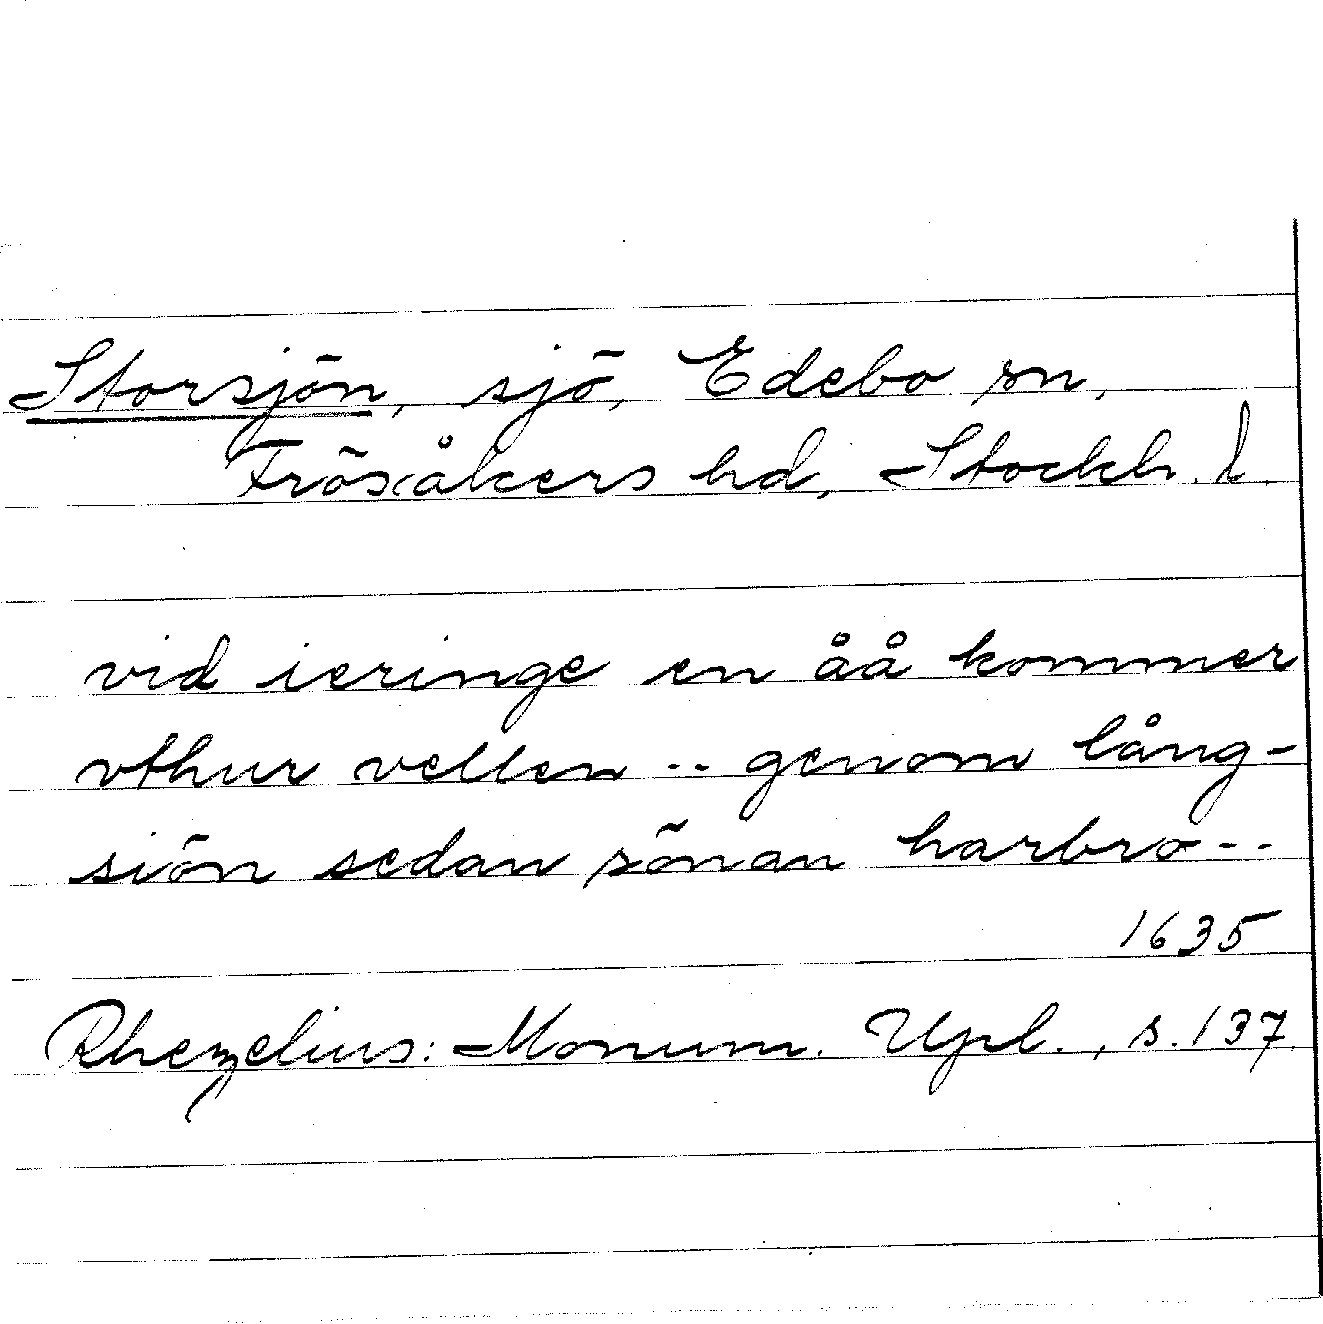 Storsjön, sjö, Edebo sn,
Frösåkers hd, Stockh. l.
vid ieringe en åå kommer
vthur vellen -- genom lång-
siön sedan sönan harbro --
1635
Rhezelius: Monum. Upl., s. 137.